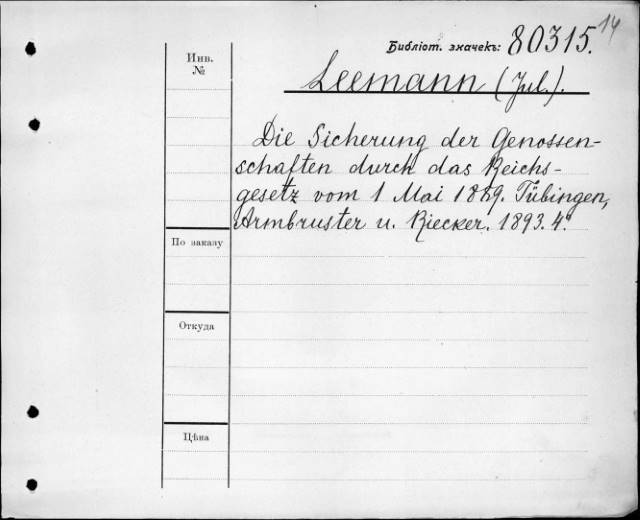 14
Библіот. значекъ: 80315.
Инв.
№
Leemann (Jul.).
Die Sicherung der Genossen-
schaften durch das Reichs-
gesetz vom 1 Mai 1889. Tübingen,
Armbruster u. Riecker. 1893. 4°.
По заказу
Откуда
Цѣна